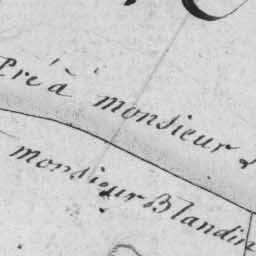 Pré à monsieur
monsieur Blandin